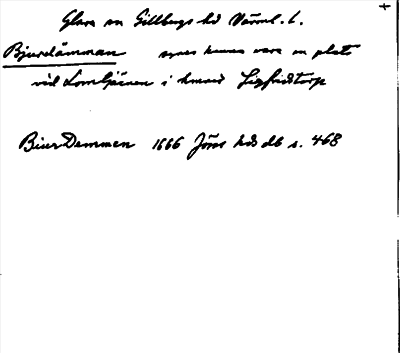 Glava sn Gillbergs hd Värml. l.
Bjurdämman synes kunna vara en plats
vid Lomtjärnen i hmanet Sigfridstorp
Biur Demmen 1666 Jösse hds db s. 468